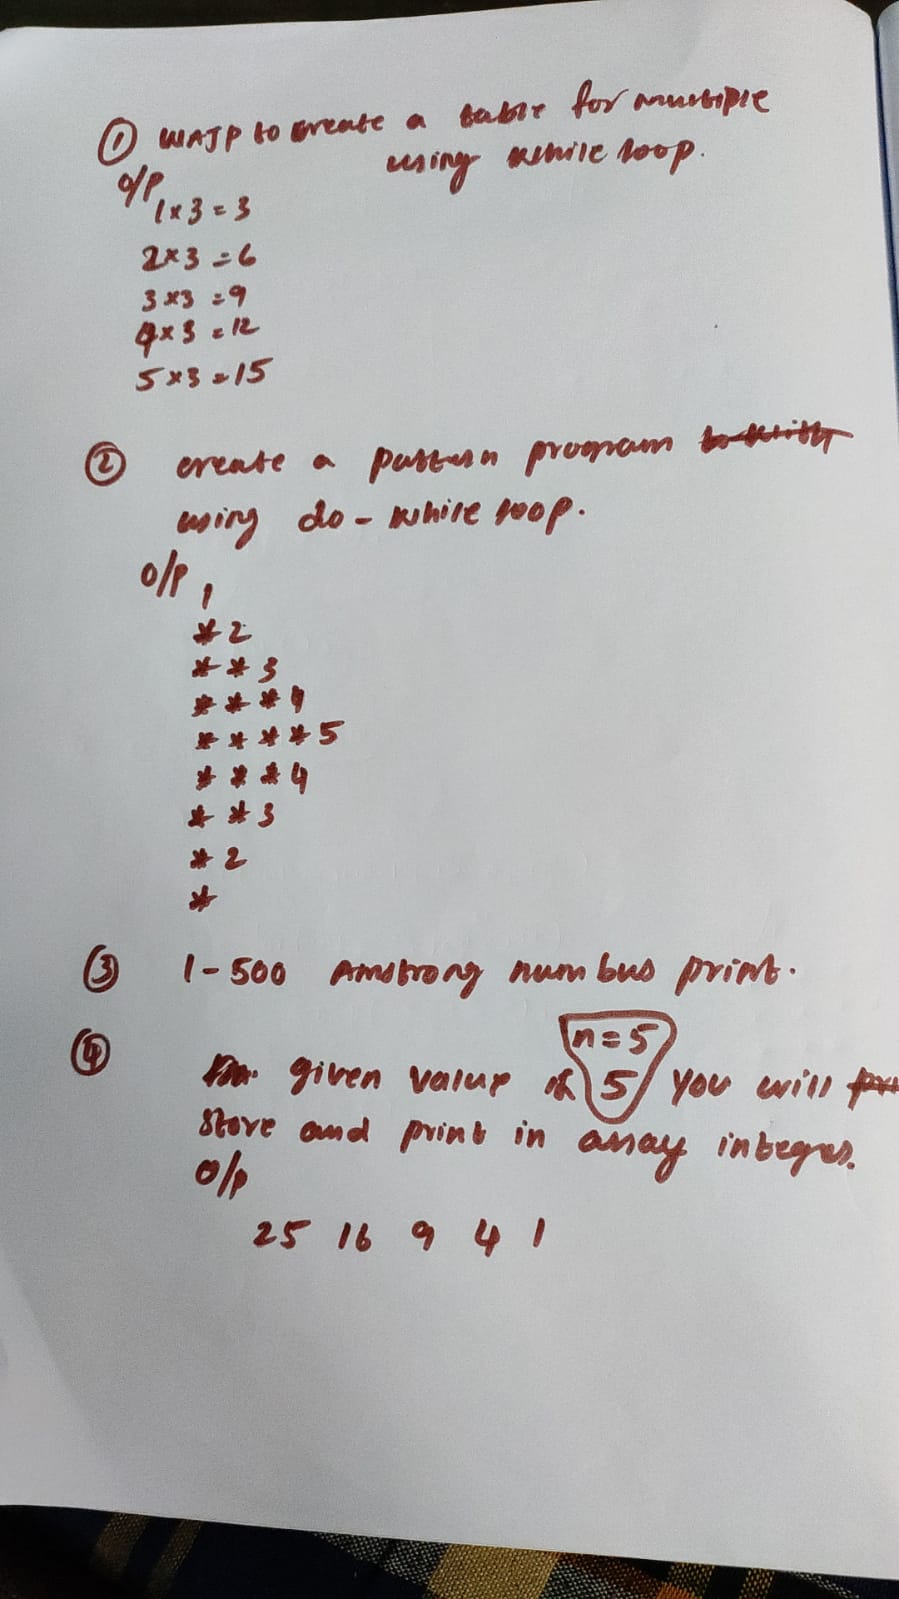 ① WAJP to create a table for multiple
using while loop.
o/p
1x3=3
2x3=6
3x3=9
4x3=12
5x3=15
② create a pattern program
using do-while loop.
o/p
1
*2
**3
***4
****5
***4
**3
*2
*
③ 1-500 Amstrong numbers print.
④ n=5
given value if 5 you will
store and print in array integers.
o/p
25 16 9 4 1